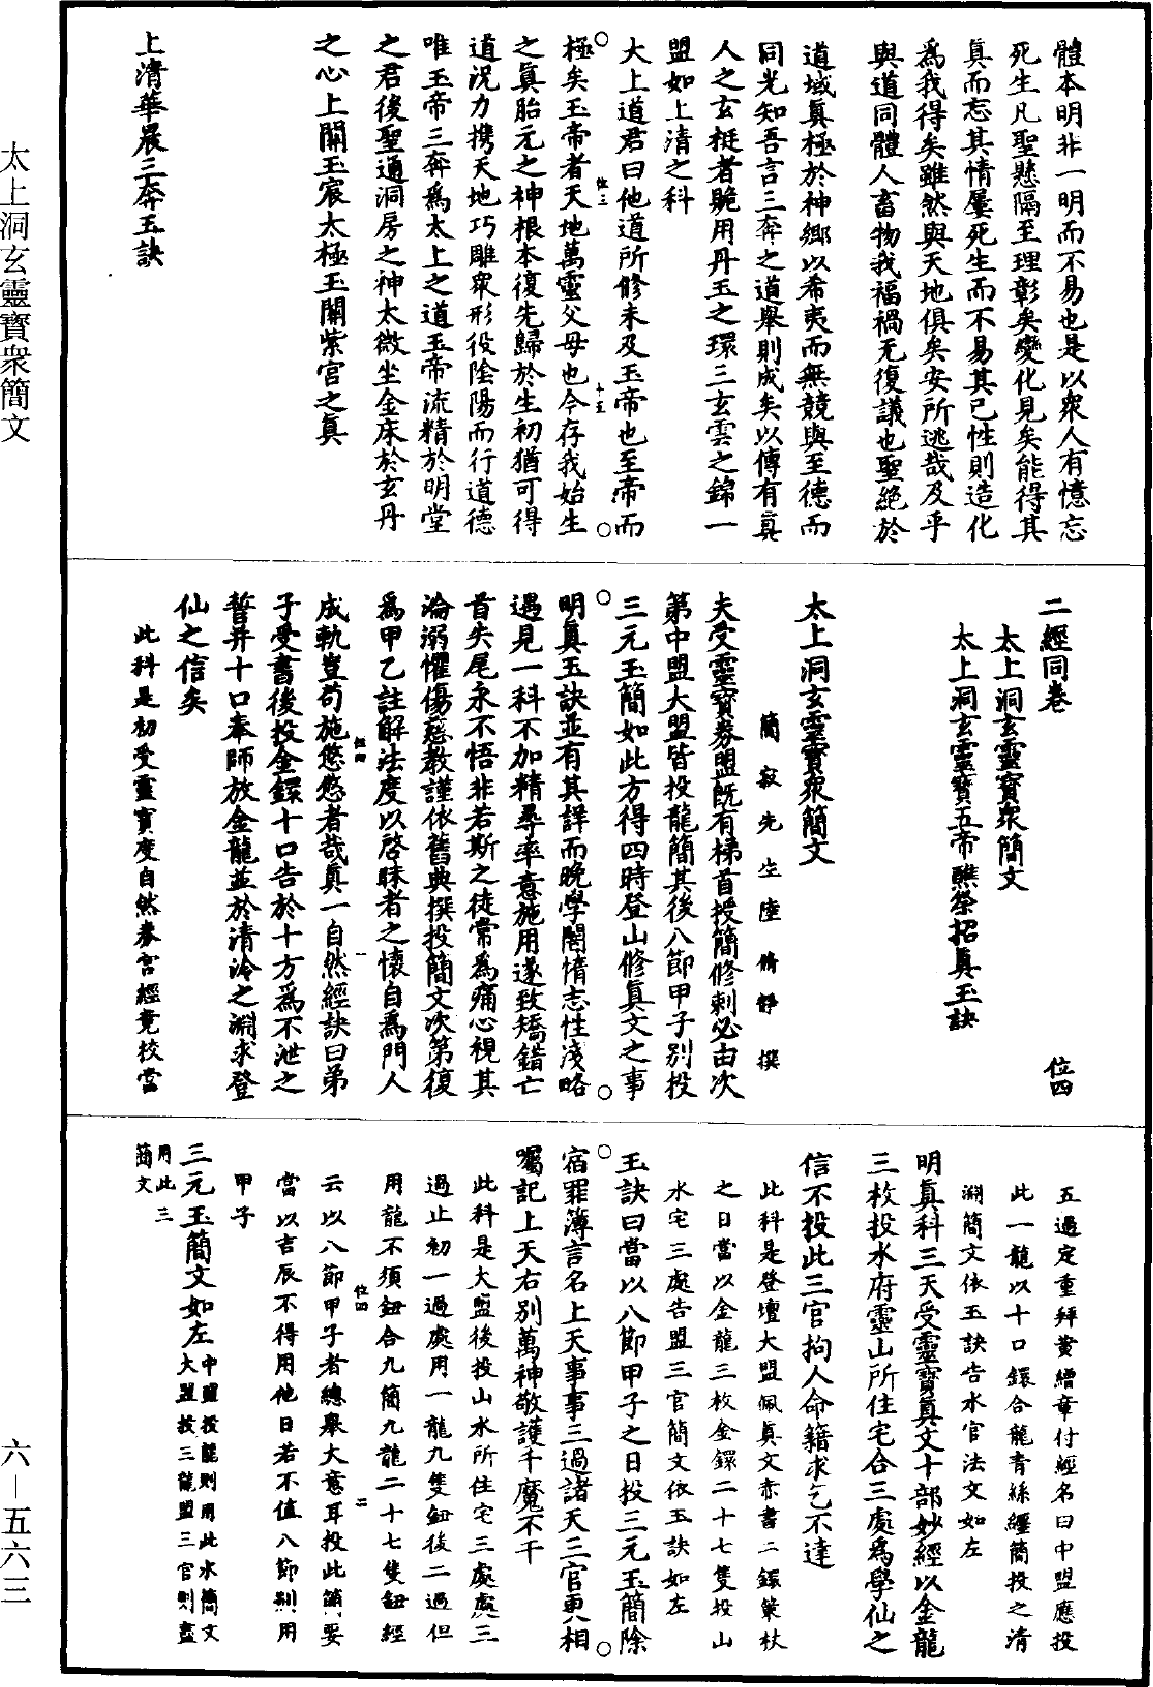 體本明非一明而不易也是以衆人有憶忘
死生凡聖懸隔至理彰矣變化見矣能得其
眞而忘其情屢死生而不易其已性則造化
爲我得矣雖然與天地俱矣安所逃哉及乎
與道同體人畜物我福禍无復議也聖絶於
道域眞極於神鄉以希夷而無競與至德而
同光知吾言三奔之道舉則成矣以傳有眞
人之玄挺者賝用丹玉之環三玄雲之錦一
盟如上清之科
大上道君曰他道所修未及玉帝也至帝而
極矣玉帝者天地萬靈父母也今存我始生
之眞胎元之神根本復先歸於生初猶可得
道況力攜天地巧雕衆形役陰陽而行道德
唯玉帝三奔爲太上之道玉帝流精於明堂
之君後聖通洞房之神太微坐金床於玄丹
之心上開玉宸太極玉闕紫宫之眞
上清華晨三奔玉訣
二經同卷 位四
太上洞玄靈寶衆簡文
太上洞玄靈寶五帝醮祭招眞玉訣
太上洞玄靈寶衆簡文
簡寂先生陸脩靜撰
夫受靈寶券盟既有梯首授簡修刺必由次
第中盟大盟皆投龍簡其後八節甲子别投
三元玉簡如此方得四時登山修眞文之事
明眞玉訣並有其詳而晚學闇惰志性淺略
遇見一科不加精尋率意施用遂致矯錯亡
首失尾永不悟非若斯之徒常爲痛心視其
淪溺懼傷慈教謹依舊典撰投簡文次第復
爲甲乙註解法度以啓昧者之懷自爲門人
成軌豈苟施悠悠者哉眞一自然經訣曰弟
子受書後投金鐶十口告於十方爲不泄之
誓并十口奉師放金龍並於清泠之淵求登
仙之信矣
此科是初受靈寶度自然券言經竟投當
五過定重拜黄繒章付經名曰中盟應投
此一龍以十口鐶合龍青絲纏簡投之清
淵簡文依玉訣告水官法文如左
明眞科三天受靈寶眞文十部妙經以金龍
三枚投水府靈山所住宅合三處爲學仙之
信不投此三官拘人命籍求乞不達
此科是登壇大盟佩眞文赤書二籙策杖
之日當以金龍三枚金鐶二十七隻投山
水宅三處告盟三官簡文依玉訣如左
玉訣曰當以八節甲子之日投三元玉簡除
宿罪簿言名上天事事三過諸天三官更相
囑記上天右别萬神敬護千魔不干
此科是大盟後投山水所住宅三處處三
過止初一過處用一龍九隻鈕後二過但
用龍不須鈕合九簡九龍二十七隻鈕經
云以八節甲子者總舉大意耳投此簡要
當以吉辰不得用他日若不值八節則用
甲子
三元玉簡文如左中盟投龍則用此水簡文大盟投三龍盟三官則盡用此三簡文
太上洞玄靈寶衆簡文
六—五六三